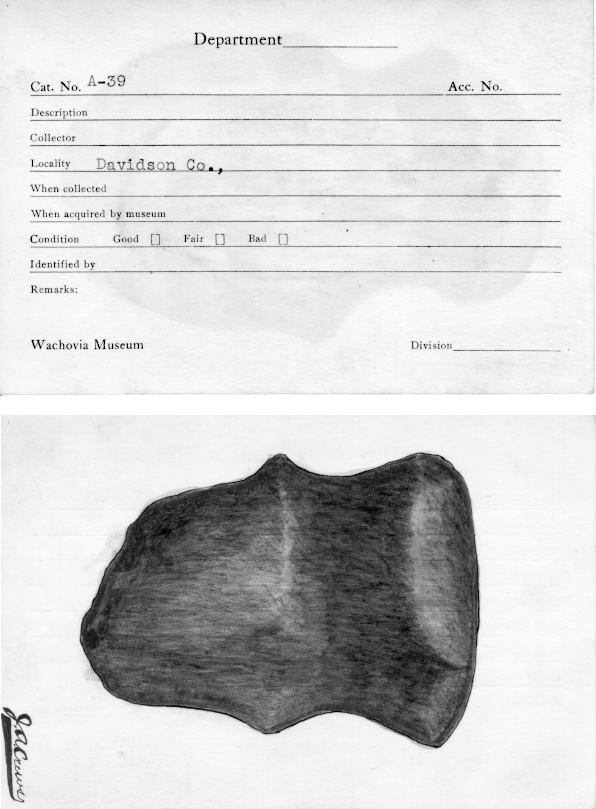 Department
Cat. No. A-39 Acc. No.
Description
Collector
Locality Davidson Co.,
When collected
When acquired by museum
Condition Good [] Fair [] Bad []
Identified by
Remarks:
Wachovia Museum Division
J.A. Crews